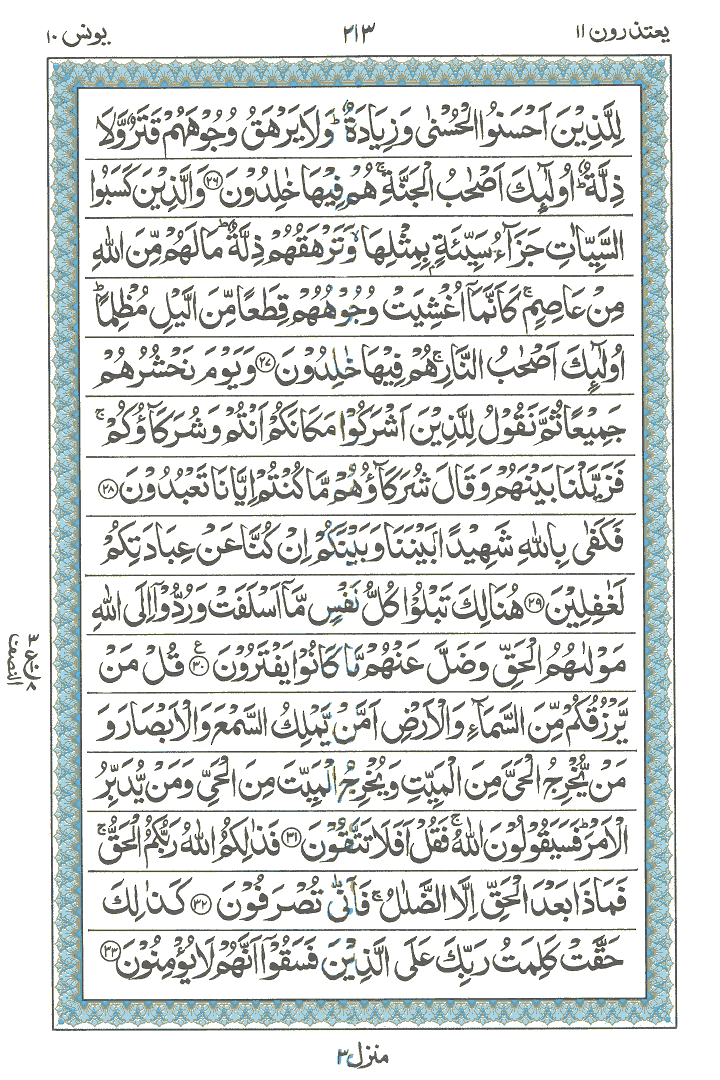 یعتذرون ۱۱
۲۱۳
یونس ۱۰
لِلَّذِیْنَ اَحْسَنُوا الْحُسْنٰی وَزِیَادَةٌ ؕ وَلَا یَرْهَقُ وُجُوْهَهُمْ قَتَرٌ وَّلَا
ذِلَّةٌ ؕ اُولٰٓئِكَ اَصْحٰبُ الْجَنَّةِ ۚ هُمْ فِیْهَا خٰلِدُوْنَ ۝۲۶ وَالَّذِیْنَ كَسَبُوا
السَّیِّاٰتِ جَزَآءُ سَیِّئَةٍۭ بِمِثْلِهَا ۙ وَتَرْهَقُهُمْ ذِلَّةٌ ؕ مَا لَهُمْ مِّنَ اللّٰهِ
مِنْ عَاصِمٍ ۚ كَاَنَّمَاۤ اُغْشِیَتْ وُجُوْهُهُمْ قِطَعًا مِّنَ الَّیْلِ مُظْلِمًا ؕ
اُولٰٓئِكَ اَصْحٰبُ النَّارِ ۚ هُمْ فِیْهَا خٰلِدُوْنَ ۝۲۷ وَیَوْمَ نَحْشُرُهُمْ
جَمِیْعًا ثُمَّ نَقُوْلُ لِلَّذِیْنَ اَشْرَكُوْا مَكَانَكُمْ اَنْتُمْ وَشُرَكَآؤُكُمْ ۚ
فَزَیَّلْنَا بَیْنَهُمْ وَقَالَ شُرَكَآؤُهُمْ مَّا كُنْتُمْ اِیَّانَا تَعْبُدُوْنَ ۝۲۸
فَكَفٰی بِاللّٰهِ شَهِیْدًۢا بَیْنَنَا وَبَیْنَكُمْ اِنْ كُنَّا عَنْ عِبَادَتِكُمْ
لَغٰفِلِیْنَ ۝۲۹ هُنَالِكَ تَبْلُوْا كُلُّ نَفْسٍ مَّاۤ اَسْلَفَتْ وَرُدُّوْۤا اِلَی اللّٰهِ
مَوْلٰىهُمُ الْحَقِّ وَضَلَّ عَنْهُمْ مَّا كَانُوْا یَفْتَرُوْنَ ۝۳۰ ع قُلْ مَنْ
یَّرْزُقُكُمْ مِّنَ السَّمَآءِ وَالْاَرْضِ اَمَّنْ یَّمْلِكُ السَّمْعَ وَالْاَبْصَارَ وَ
مَنْ یُّخْرِجُ الْحَیَّ مِنَ الْمَیِّتِ وَیُخْرِجُ الْمَیِّتَ مِنَ الْحَیِّ وَمَنْ یُّدَبِّرُ
الْاَمْرَ ؕ فَسَیَقُوْلُوْنَ اللّٰهُ ۚ فَقُلْ اَفَلَا تَتَّقُوْنَ ۝۳۱ فَذٰلِكُمُ اللّٰهُ رَبُّكُمُ الْحَقُّ ۚ
فَمَاذَا بَعْدَ الْحَقِّ اِلَّا الضَّلٰلُ ۚ فَاَنّٰی تُصْرَفُوْنَ ۝۳۲ كَذٰلِكَ
حَقَّتْ كَلِمَتُ رَبِّكَ عَلَی الَّذِیْنَ فَسَقُوْۤا اَنَّهُمْ لَا یُؤْمِنُوْنَ ۝۳۳
النصف
منزل ۳